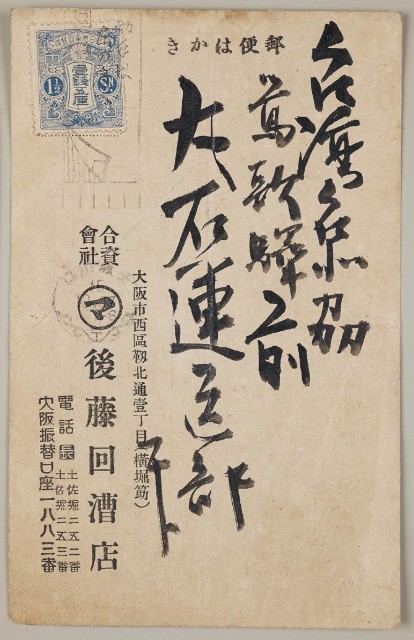 郵便はかき
台湾台北州
鶯歌驛前
大石運送部
大阪市西區靱北通壹丁目(横堀筋)
合資
會社
マ
後藤回漕店
電話
土佐堀二五二番
土佐堀二五三番
大阪振替口座一八八三番
壹錢五厘
1½
Sn